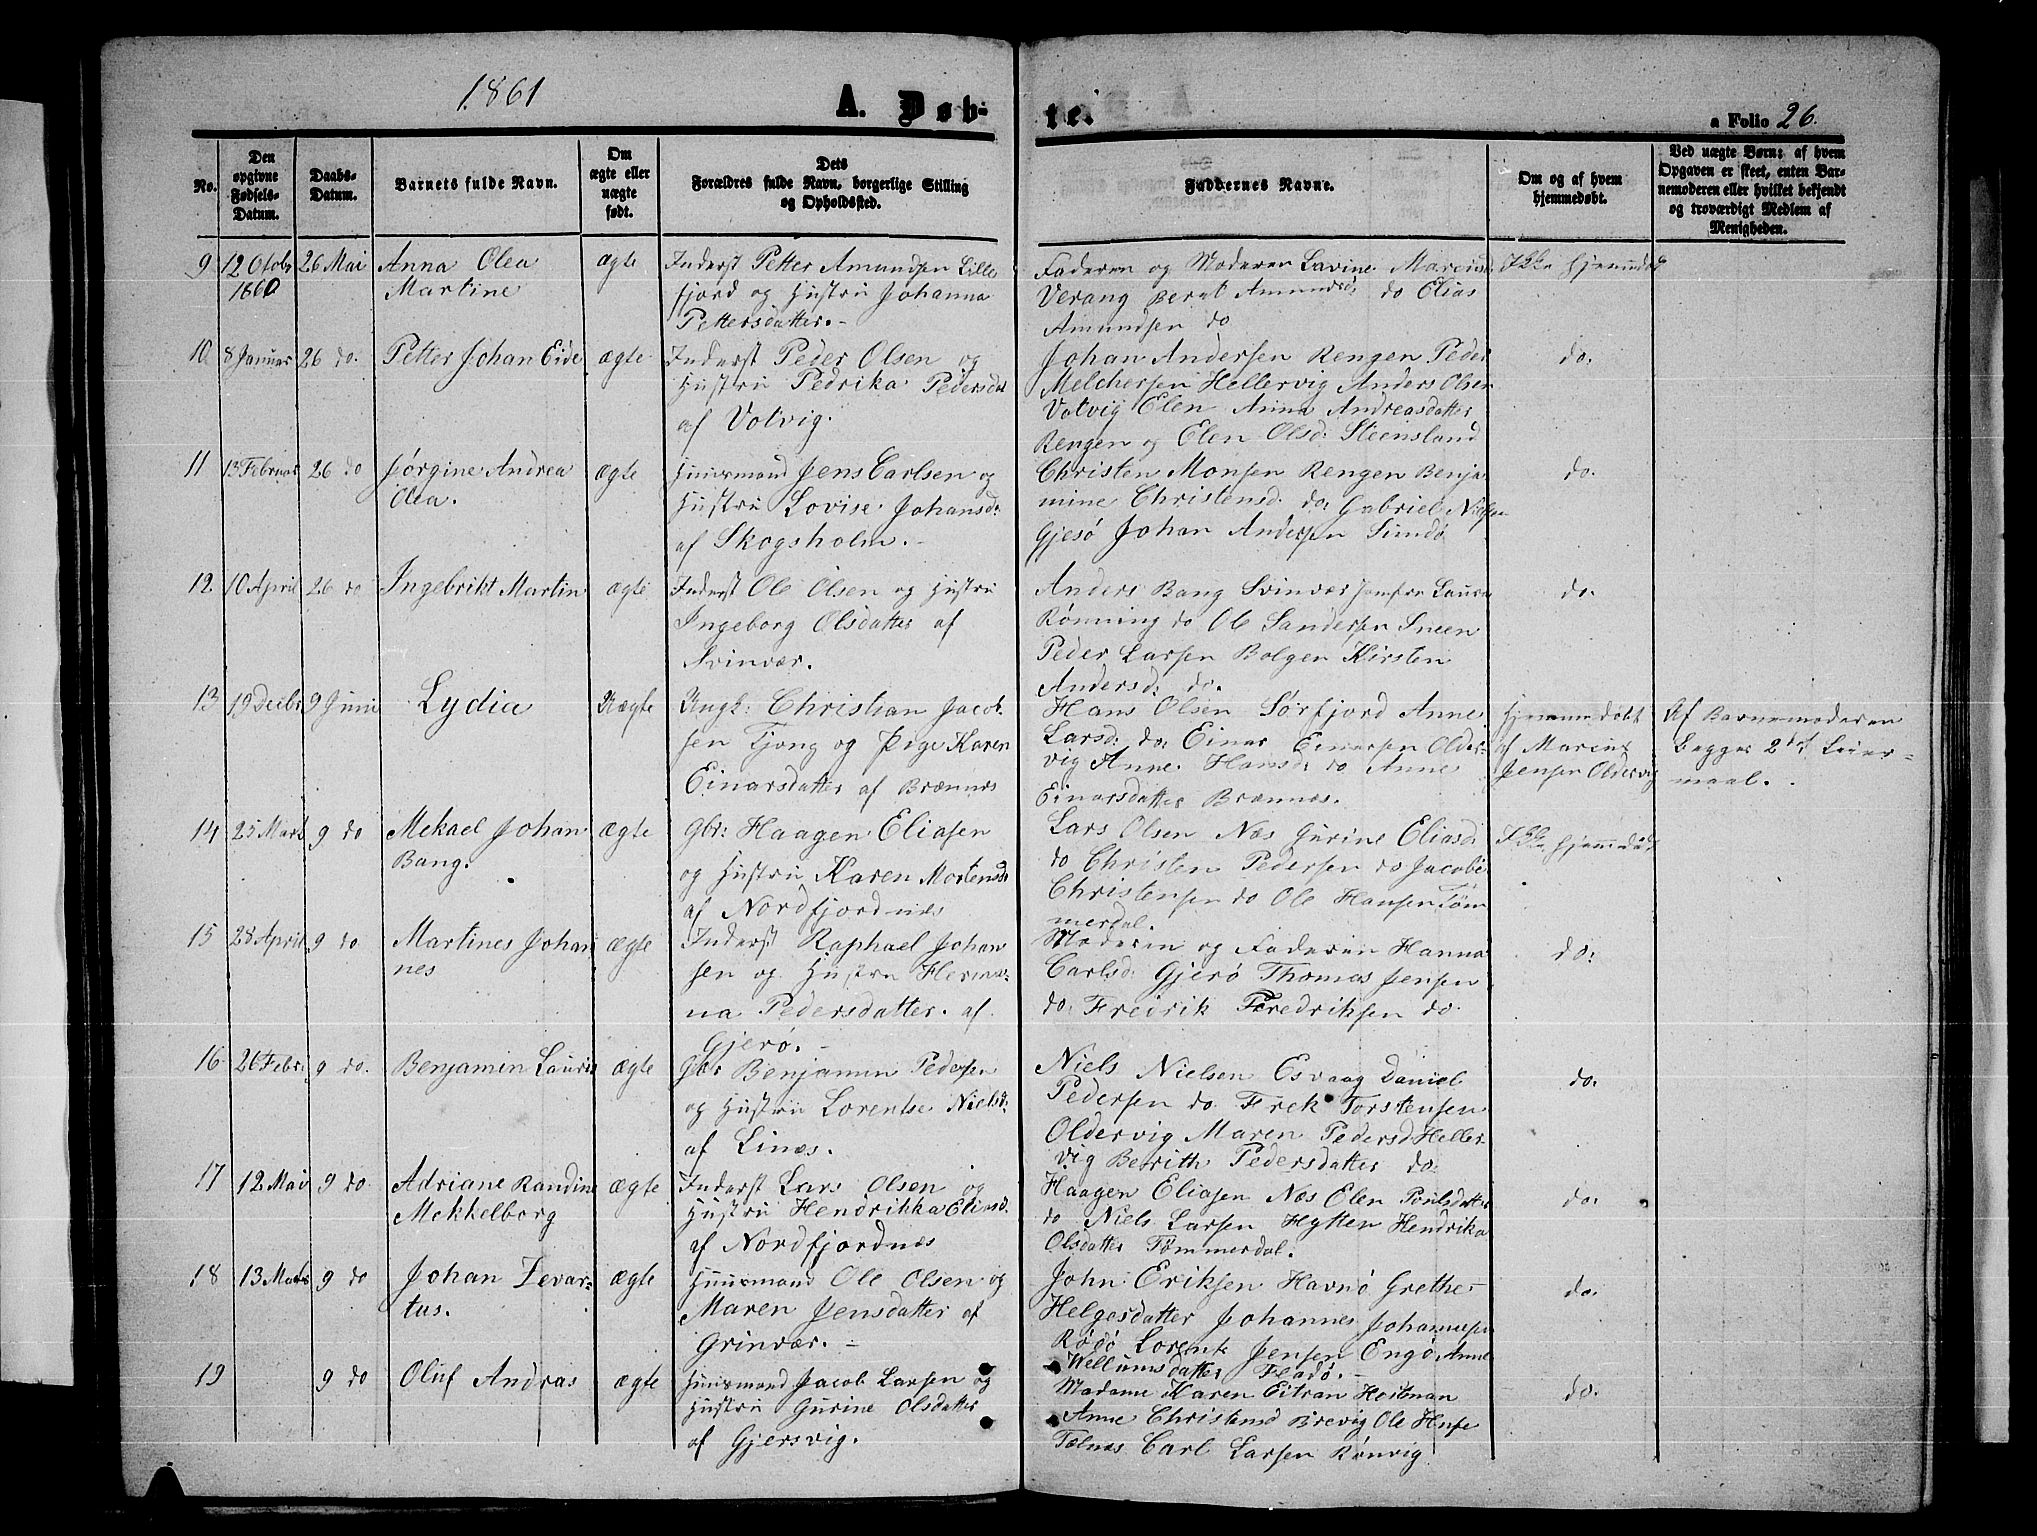 1861
A. Døb-
te.
a Folio 26.
No.
Den
opgivne
Fødsels-
Datum.
Daabs-
Datum.
Barnets fulde Navn.
Om
ægte eller
uægte
født.
Dets
Forældres fulde Navn, borgerlige Stilling
og Opholdssted.
Faddernes Navne.
Om og af hvem
hjemmedøbt.
Ved uægte Børn: af hvem
Opgaven er skeet, enten Bar-
nemoderen eller hvilket bekjendt
og troværdigt Medlem af
Menigheden.
9
12 Otobr
1860
26 Mai
Anna Olea
Martine
ægte
Inderst Petter Amundsen Lille
fjord og Hustru Johanna
Pettersdatter.-
Faderen og Moderen Lavine
Verang Berat Amundsd: do Elias
Amundsen do
Ikke hjemmdøbt
10
8 Januar
26 do.
Petter Johan Eide
ægte
Inderst Peder Olsen og
Hustru Pedrika Pedersdat
af Votvig.
Johan Andersen Rengen Peder
Melchersen Hellervig Anders Olsen
Votvig Elen Anna Andreasdatter
Rengen og Elen Olsd: Steensland
do.
11
13 Februar
26 do
Jørgine Andrea
Olea.
ægte
Huusmand Jens Carlsen og
Hustru Lovise Johansd:
af Skogsholm.-
Christen Monsen Rengen Benja
mine Christensd. do: Gabriel Nielsen
Gjesø Johan Andersen Sundø
do.
12
10 April
26 do
Ingebrikt Martin
ægte
Inderst Ole Olsen og Hustru
Ingeborg Olsdatter af
Svinvær.
Anders Bang Svinvær Jomfru Laura
Rønning do Ole Sandersen Sneen
Peder Larsen Bolgen Kirsten
Andersd: do.
do.
13
19 Decbr
9 Juni
Lydia
Uægte
Ungk: Christian Jacob
sen Tjong og Pige Karen
Einarsdatter af Brænnæs
Hans Olsen Sørfjord Anne
Larsd: do: Einar Einarsen Older-
vig Anne Hansd: do Anne
Einarsdatter Brænnæs.
Hjemmedøbt
af Marius
Jensen Oldervig
Af Barnemoderen
begges 2det Leier-
maal.
14
25 Mart
9 do
Mekael Johan
Bang.
ægte
Gbr: Haagen Eliasen
og Hustru Karen Mortensd
af Nordfjordnæs
Lars Olsen Næs Gurine Eliasd:
do Christen Pedersen do Jacobe
Christensen do Ole Hansen Tøm
merdal.
Ikke hjemmdøbt
15
28 April
9 do
Martines Johan
nes
ægte
Inderst Raphael Johan
sen og Hustru Herma-
na Pedersdatter. af
Gjerø.-
Moderen og Faderen Hanna
Carlsd: Gjerø Thomas Jensen
do: Fredrik Fredriksen do
do:
16
26 Febr:
9 do.
Benjamin Lauris
ægte
Gbr Benjamin Pedersen
og Hustru Lorentse Nielsd:
af Linæs.
Niels Nielsen Esvaag Daniel
Pedersen do. Frek Torstensen
Oldervig Maren Pedersd Heller-
vig Berith Pedersdatter do.
do.
17
12 Mai
9 do.
Adriane Randine
Mekkelborg
ægte
Inderst Lars Olsen og
Hustru Hendrikka Eliasd.
af Nordfjordnæs
Haagen Eliasen Næs Elen Poulsdatter
do Niels Larsen Hytten Hendrika
Olsdatter Tømmerdal.
do.
18
13 Marts
9 do
Johan Zevar-
tus.
ægte
Huusmand Ole Olsen og
Maren Jensdatter af
Grinvær.-
John Eriksen Havnø Grethe
Helgesdatter Johannes Johannesen
Rødø Lorents Jensen Engø Anne
Wellumsdatter Fladø.-
do.
19
9 do
Oluf Andras
ægte
Huusmand Jacob Larsen og
Hustru Gurine Olsdatter
af Gjersvig.
Madame Karen Eitran Hostman
Anne Christensd Brevig Ole
Tælnæs Carl Larsen Rønvig
do.